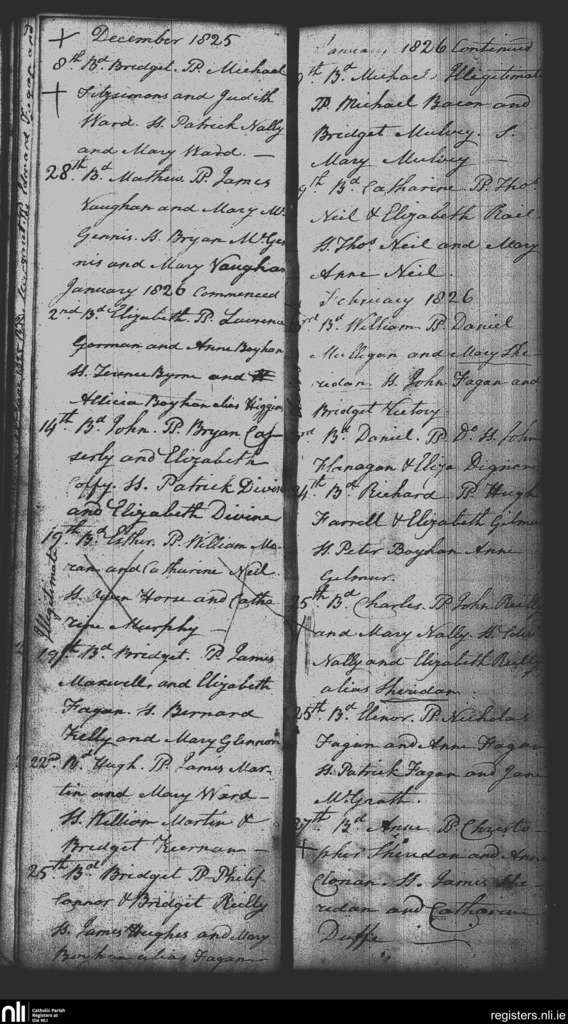 December 1825
8th Bd Bridget. PP. Michael
Fitzsimons and Judith
Ward. SS. Patrick Nally
and Mary Ward. —
28th Bd Mathew PP. James
Vaughan and Mary Mc
Gennis. SS. Bryan McGen
nis and Mary Vaughan
January 1826 Commenced
2nd Bd Elizabeth. PP. Laurence
Gorman and Anne Boyhan
SS. Terence Byrne and
Allicia Boyhan alias Higgins
14th Bd John. PP. Bryan Cas
serly and Elizabeth
Coffy. SS. Patrick Divine
and Elizabeth Divine
19th Bd Esther. PP. William Mo-
ran and Catharine Neil.
SS. Owen Horse and Catha
rine Murphy —
Illegitimate
19th Bd Bridget. PP. James
Maxwell, and Elizabeth
Fagan. SS. Bernard
Kelly and Mary Glennon
22nd Bd Hugh. PP. James Mar-
tin and Mary Ward —
SS. William Martin &
Bridget Keernan —
25th Bd Bridget PP. Philip
Connor & Bridget Reilly
SS. James Hughes and Mary
Boyhan alias Fagan
January 1826 Continued
9th Bd Michael Illegitimate
PP Michael Bacon and
Bridget Mulvey. S.
Mary Mulvey —
9th Bd Catharine PP. Thos
Neil & Elizabeth Rail.
SS. Thos Neil and Mary
Anne Neil.
February 1826
Bd William PP. Daniel
McEligan and Mary She-
ridan. SS. John Fagan and
Bridget Victory
Bd Daniel. PP. Do. SS. John
Flanagan & Eliza Dignan
24th Bd Richard PP. Hugh
Farrell & Elizabeth Gilmur
SS. Peter Boyhan Anne
Gilmur.
25th Bd Charles. PP. John Reilly
and Mary Nally. SS.
Nally and Elizabeth Reilly
alias Sheridan.
25th Bd Elenor. PP. Nicholas
Fagan and Anne Fagan
SS. Patrick Fagan and Jane
McGrath.
27th Bd Anne PP. Christo-
pher Sheridan and Anne
Clonan. SS. James She-
ridan and Catharine
Duffe
nli
Catholic Parish
Registers at
the NLI
registers.nli.ie